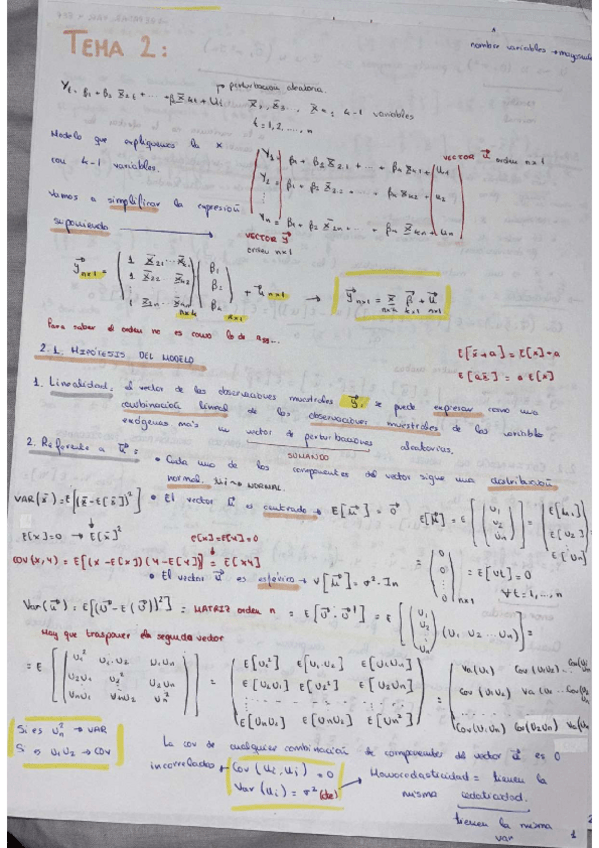 nombre variables → mayúscula
TEMA 2:
Yt = β1 + β2 X2t + ... + βk Xkt + Ut → perturbación aleatoria.
X2, X3 ... Xk: k-1 variables
t = 1, 2, ..., n
Modelo que expliquemos la x
con k-1 variables.
Y1 = β1 + β2 X21 + ... + βk Xk1 + U1
VECTOR u orden nx1
Y2 = β1 + β2 X22 + ... + βk Xk2 + U2
Vamos a simplificar la expresión
Yn = β1 + β2 X2n + ... + βk Xkn + Un
suponiendo
VECTOR y
orden nx1
y nx1 = (1 X21 ... Xk1 / 1 X22 ... Xk2 / 1 X2n ... Xkn) nxk (β1 / β2 / βk) kx1 + u nx1 → y nx1 = X nxk β kx1 + u nx1
Para saber el orden no es como lo de
E[x + a] = E[x] + a
2.1. HIPÓTESIS DEL MODELO
E[ax] = a E[x]
1. Linealidad: el vector de las observaciones muestrales y, se puede expresar como una
combinación lineal de las observaciones muestrales de las variable
exógenas más un vector de perturbaciones aleatorias.
SUMANDO
2. Referente a u:
• Cada uno de los componentes del vector sigue una distribución
normal. Ui → NORMAL.
VAR(x) = E[(x - E[x])²]
• El vector u es centrado → E[u] = 0
E[u] = E[(U1 / U2 / Un)] = (E[U1] / E[U2] / E[Un])
E[x] = 0 → E[x]²
E[x] = E[y] = 0
COV(x,y) = E[(x - E[x])(y - E[y])] = E[xy]
= (0 / 0 / : / 0) nx1 = E[Ut] = 0
∀t = 1, ..., n
• El vector u es esférico → V[u] = σ² · In
Var(u) = E[(U - E(U))²] = MATRIZ orden n = E[U · U'] = E[(U1 / U2 / : / Un)(U1 U2 ... Un)] =
Hay que trasponer el segundo vector
= E[(U1² U1·U2 U1Un / U2U1 U2² U2Un / UnU1 UnU2 Un²)] = (E[U1²] E[U1·U2] E[U1Un] / E[U2U1] E[U2²] E[U2Un] / E[UnU1] E[UnU2] E[Un²]) = (Va(U1) Cov(U1U2)...Cov(U1 / Cov(U1U2) Va(U2 ... Cov(U2 / Cov(U1Un) Cov(U2Un) Va(Un)
Si es Un² → VAR
Si es U1U2 → COV
La cov de cualquier combinación de componentes del vector u es 0
incorrelados ← Cov(Ui, Uj) = 0
Var(Ui) = σ² (cte) → Homocedasticidad = tienen la
misma cedasticidad.
tienen la misma
var
1